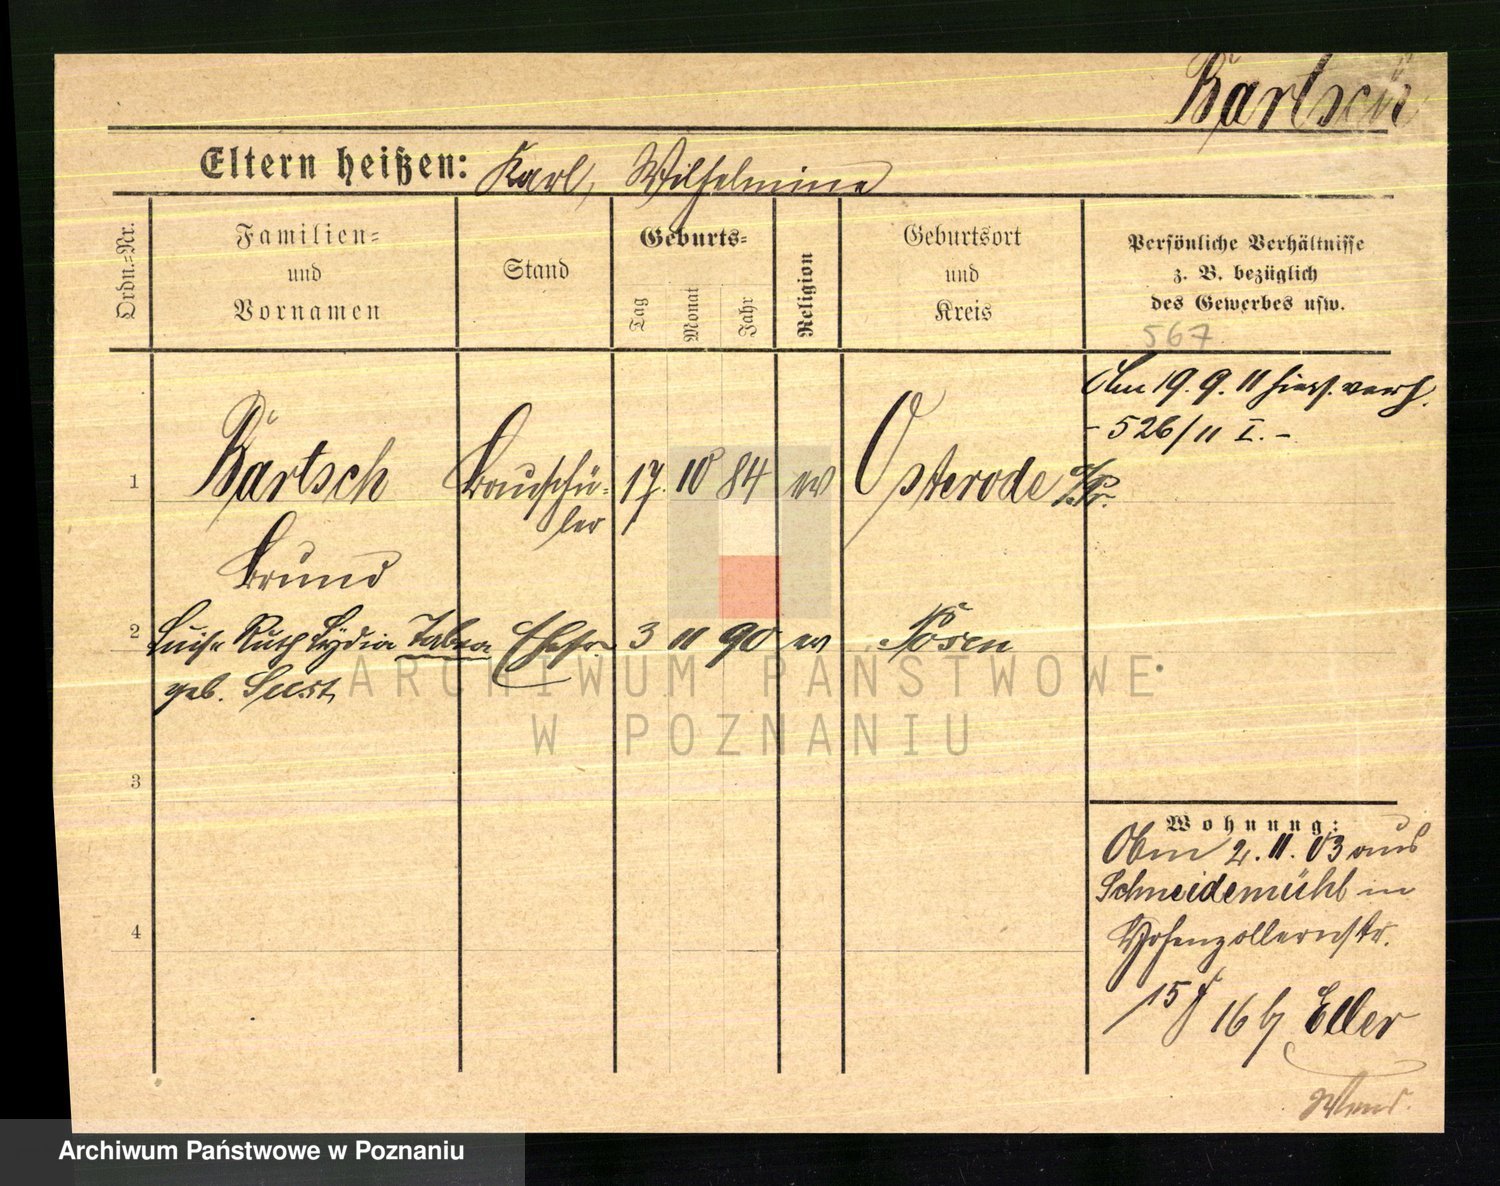 Bartsch
Eltern heißen: Karl, Wilhelmine
Ordn.-Nr.
Familien-
und
Vornamen
Stand
Geburts-
Tag
Monat
Jahr
Religion
Geburtsort
und
Kreis
Persönliche Verhältnisse
z. B. bezüglich
des Gewerbes usw.
567
Am 19. 9. 11 hies. verh.
- 526/11 I. -
1 Bartsch Bauschü- 17. 10 84 ev Osterode o/Pr.
ler
Bruno
2 Luise Ruth Lydia Tabea Ehefr. 3 11 90 ev Posen
geb. Seest
3
4
Wohnung:
2. 11. 03 aus
Schneidemühl in
Hohenzollernstr.
15 16 b/ Eller
Wend.
ARCHIWUM PAŃSTWOWE
W POZNANIU
Archiwum Państwowe w Poznaniu